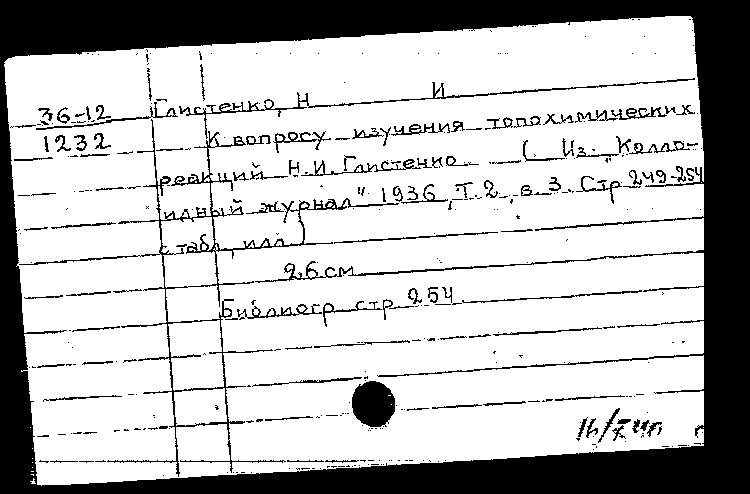 36-12
1232
Глистенко, Н И
К вопросу изучения топохимических
реакций Н.И. Глистенко (Из. „Колло-
идный журнал" 1936, Т. 2, в. 3. Стр 249-254
с табл, илл)
26 см
Библиогр стр 254.